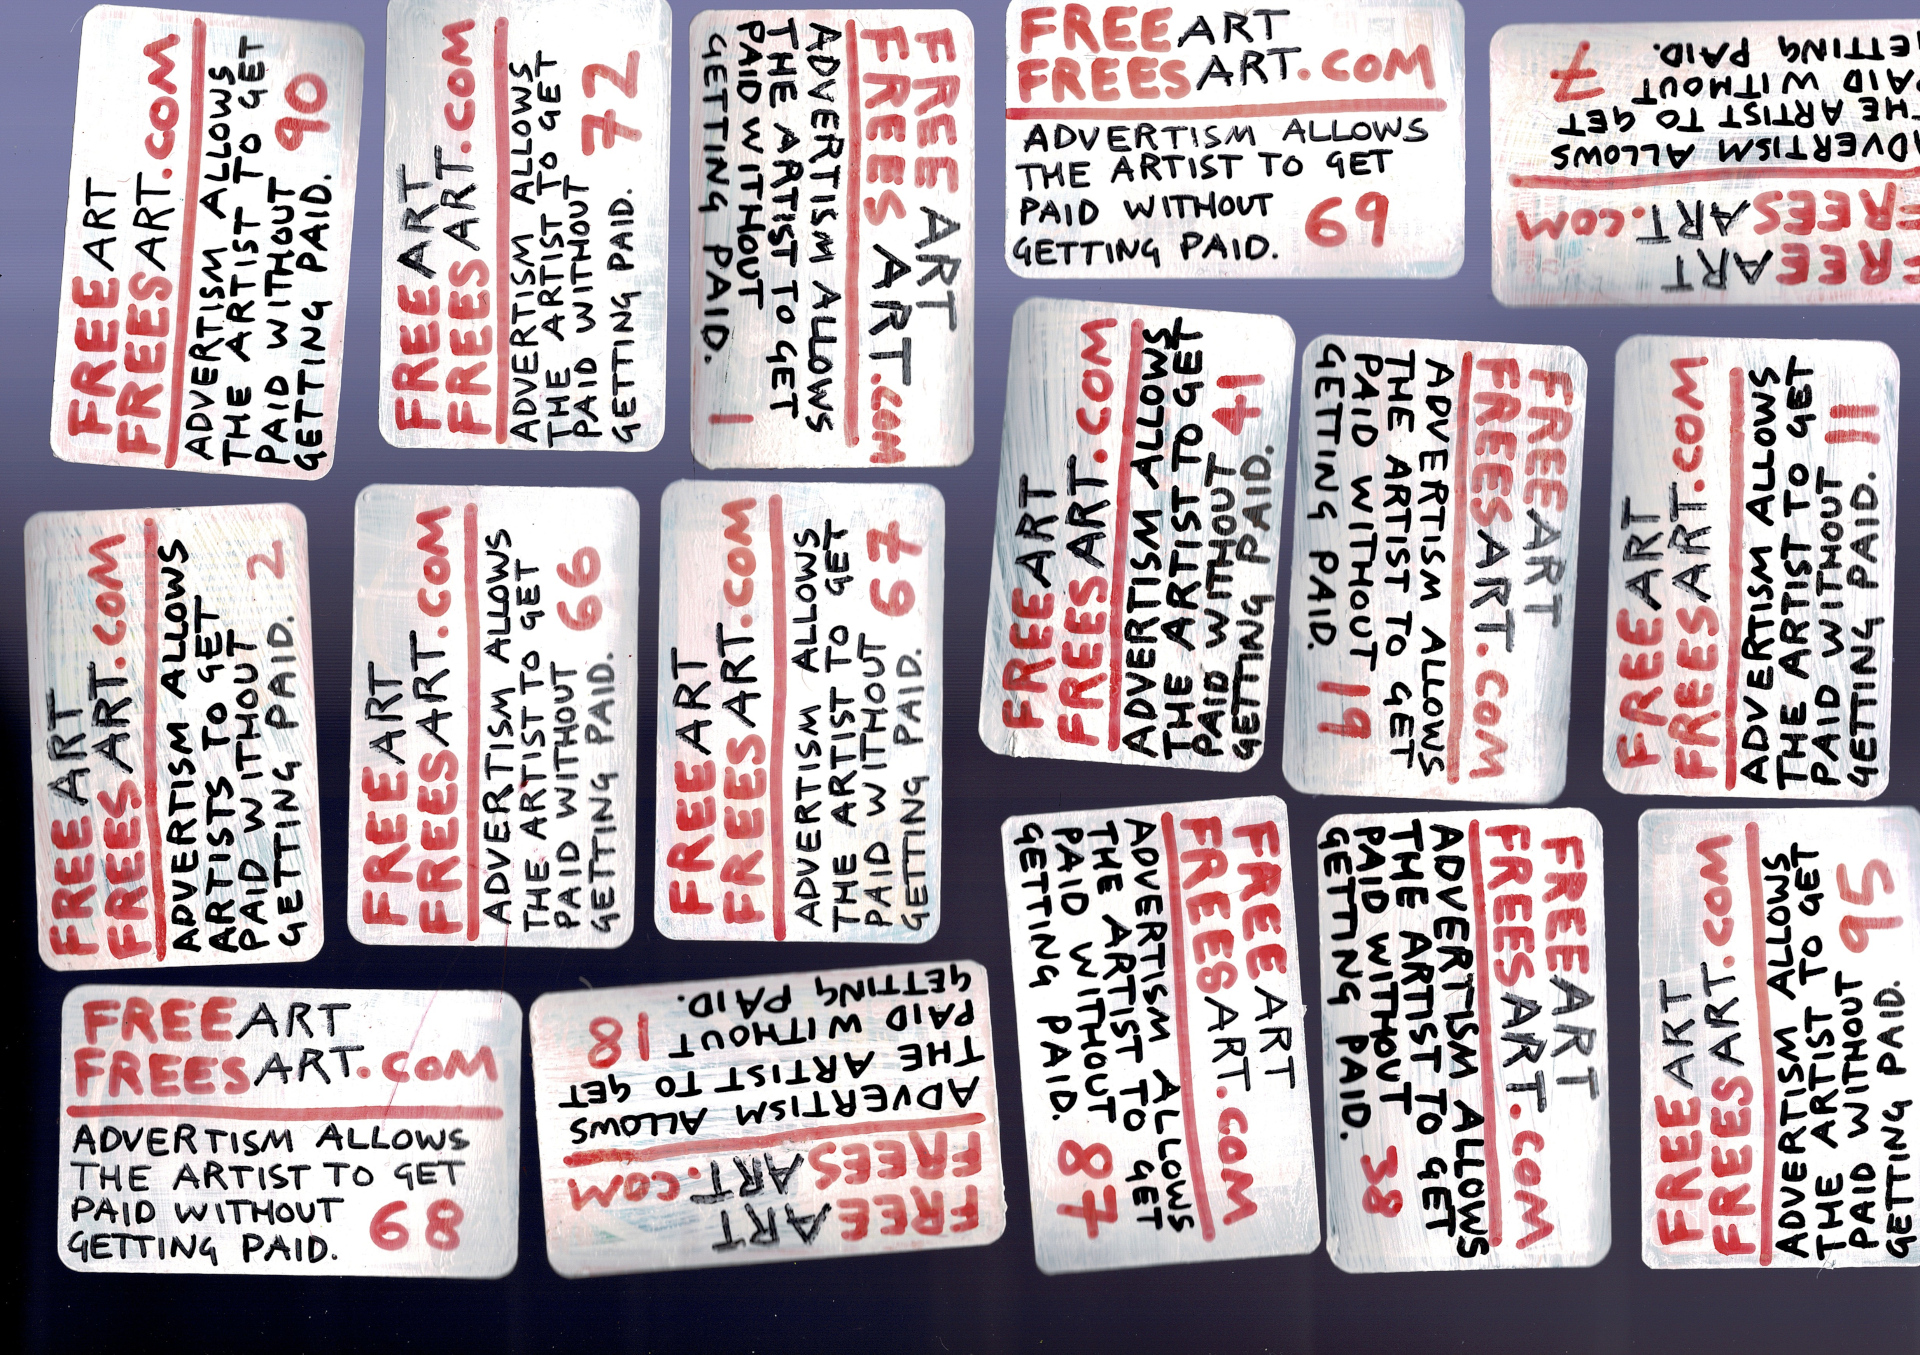 FREE ART
FREES ART.COM
ADVERTISM ALLOWS
THE ARTIST TO GET
PAID WITHOUT
GETTING PAID. 90
FREE ART
FREES ART.COM
ADVERTISM ALLOWS
THE ARTIST TO GET
PAID WITHOUT
GETTING PAID. 72
FREE ART
FREES ART.COM
ADVERTISM ALLOWS
THE ARTIST TO GET
PAID WITHOUT
GETTING PAID. 1
FREE ART
FREES ART.COM
ADVERTISM ALLOWS
THE ARTIST TO GET
PAID WITHOUT
GETTING PAID. 69
FREE ART
FREES ART.COM
ADVERTISM ALLOWS
HE ARTIST TO GET
PAID WITHOUT
ETTING PAID. 7
FREE ART
FREES ART.COM
ADVERTISM ALLOWS
ARTISTS TO GET
PAID WITHOUT
GETTING PAID. 2
FREE ART
FREES ART.COM
ADVERTISM ALLOWS
THE ARTIST TO GET
PAID WITHOUT
GETTING PAID. 66
FREE ART
FREES ART.COM
ADVERTISM ALLOWS
THE ARTIST TO GET
PAID WITHOUT
GETTING PAID. 67
FREE ART
FREES ART.COM
ADVERTISM ALLOWS
THE ARTIST TO GET
PAID WITHOUT
GETTING PAID. 41
FREE ART
FREES ART.COM
ADVERTISM ALLOWS
THE ARTIST TO GET
PAID WITHOUT
GETTING PAID. 19
FREE ART
FREES ART.COM
ADVERTISM ALLOWS
THE ARTIST TO GET
PAID WITHOUT
GETTING PAID. 11
FREE ART
FREES ART.COM
ADVERTISM ALLOWS
THE ARTIST TO GET
PAID WITHOUT
GETTING PAID. 68
FREE ART
FREES ART.COM
ADVERTISM ALLOWS
THE ARTIST TO GET
PAID WITHOUT
GETTING PAID. 18
FREE ART
FREES ART.COM
ADVERTISM ALLOWS
THE ARTIST TO GET
PAID WITHOUT
GETTING PAID. 87
FREE ART
FREES ART.COM
ADVERTISM ALLOWS
THE ARTIST TO GET
PAID WITHOUT
GETTING PAID. 38
FREE ART
FREES ART.COM
ADVERTISM ALLOWS
THE ARTIST TO GET
PAID WITHOUT
GETTING PAID. 95